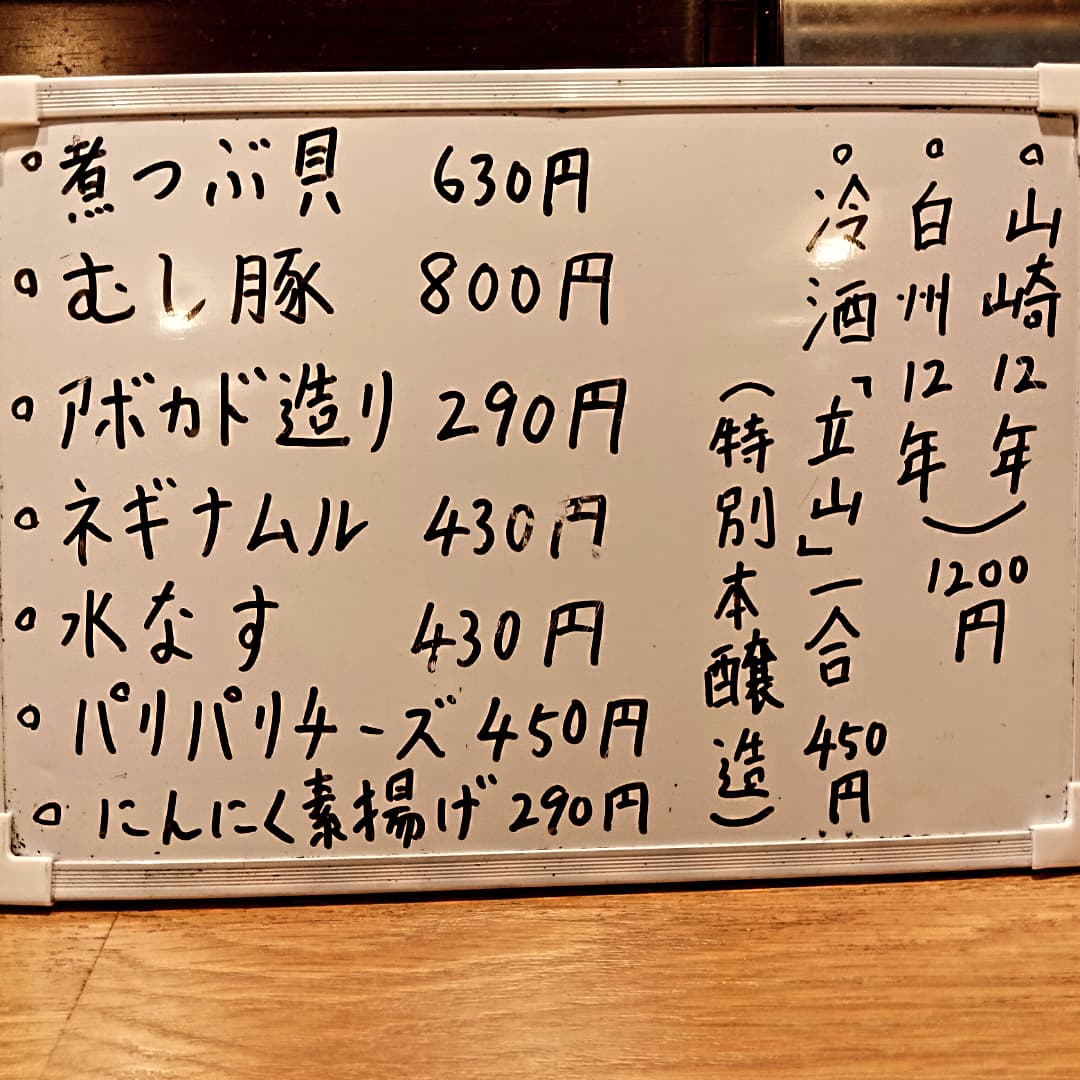 ◦煮つぶ貝 630円
◦むし豚 800円
◦アボカド造り 290円
◦ネギナムル 430円
◦水なす 430円
◦パリパリチーズ 450円
◦にんにく素揚げ 290円
◦山崎12年
◦白州12年
)1200円
◦冷酒「立山」一合 450円
(特別本醸造)